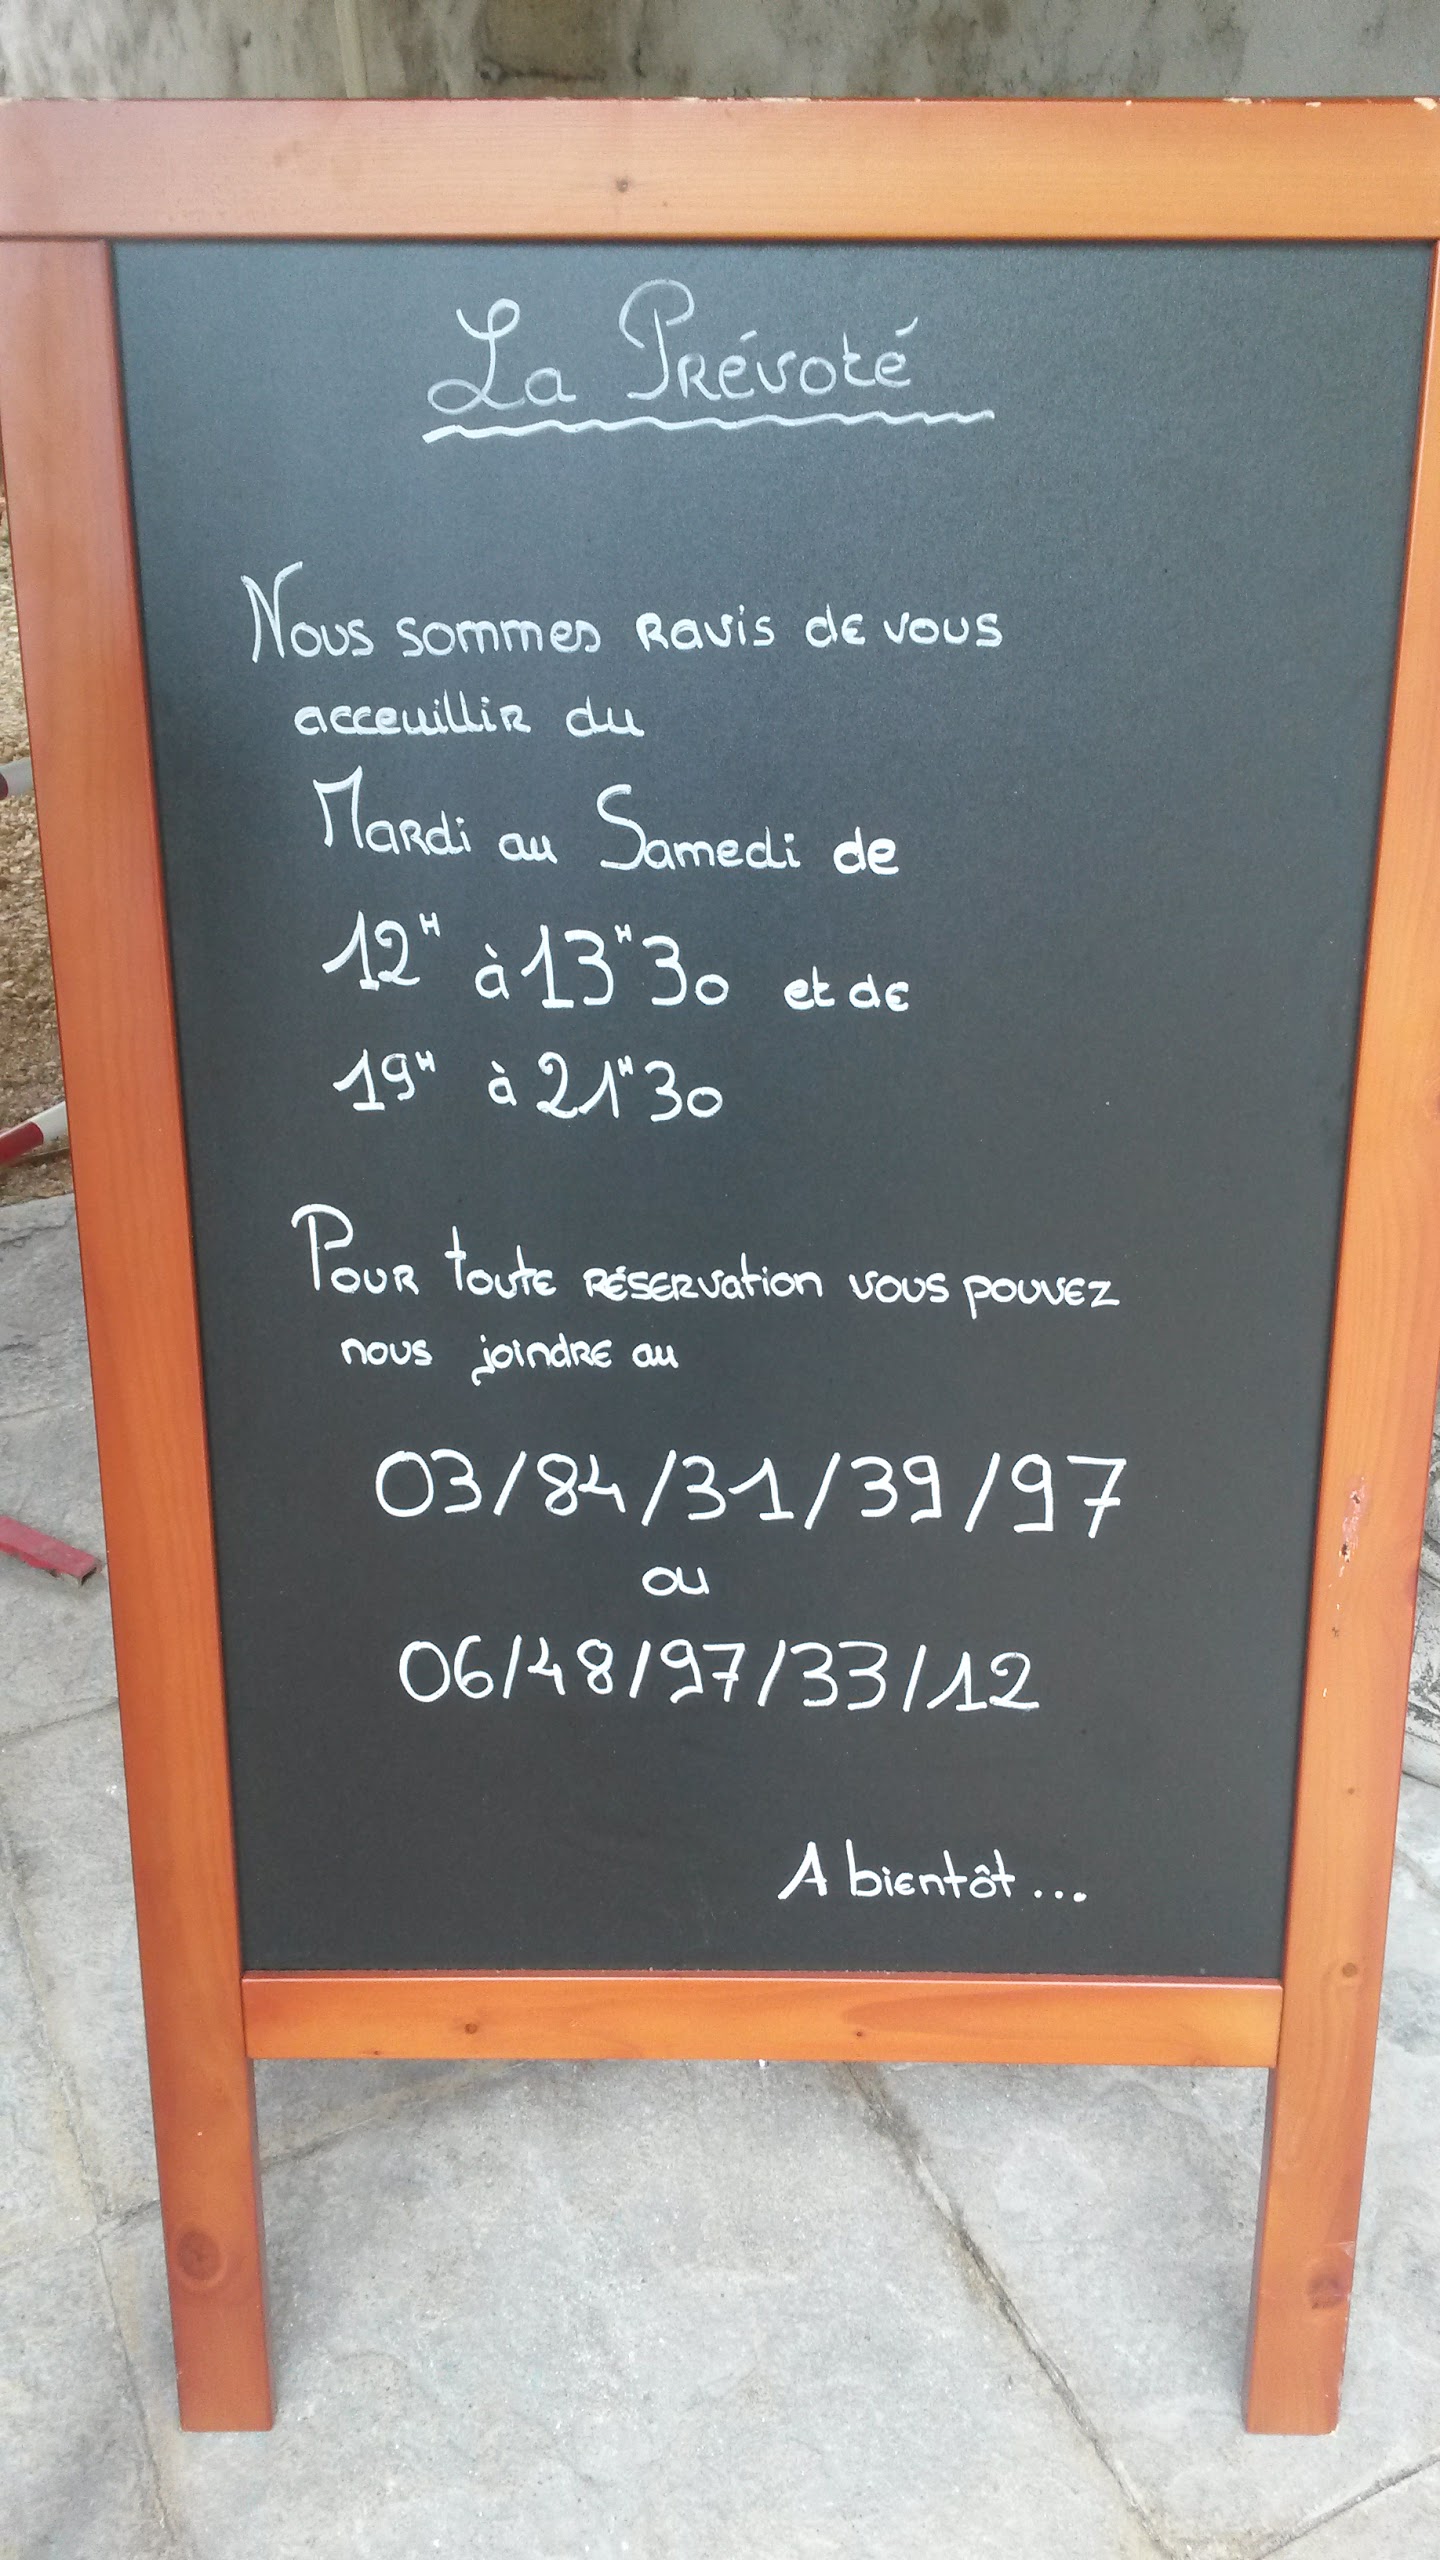 La Prévoté
Nous sommes ravis de vous
acceuillir du
Mardi au Samedi de
12H à 13H30 et de
19H à 21H30
Pour toute réservation vous pouvez
nous joindre au
03/84/31/39/97
ou
06/48/97/33/12
A bientôt...